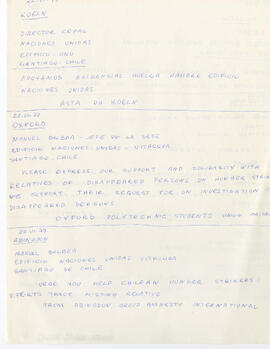 KOELN
DIRECTOR CEPAL
NACIONES UNIDAS
EDIFICIO ONU
SANTIAGO - CHILE
APOYAMOS EXIGENCIAS HUELGA HAMBRE EDIFICIO
NACIONES UNIDAS
ASTA DU KOELN
OXFORD
MANUEL BALBOA - JEFE DE LA SEDE
EDIFICIO NACIONES UNIDAS - VITACURA
SANTIAGO - CHILE
PLEASE EXPRESS OUR SUPPORT AND SOLIDARITY WITH
RELATIVES OF DISAPPEARED PERSONS ON HUNGER STRIKE
WE SUPPORT THEIR REQUEST FOR AN INVESTIGATION OF
DISAPPEARED PERSONS
OXFORD POLYTECHNIC STUDENTS UNION
ABINGDON
MANUEL BALBOA
EDIFICIO NACIONES UNIDAS VITACURA
SANTIAGO DE CHILE
URGE YOU HELP CHILEAN HUNGER STRIKERS
EFFORTS TRACE MISSING RELATIVE
FROM ABINGDON GROUP AMNESTY INTERNATIONAL